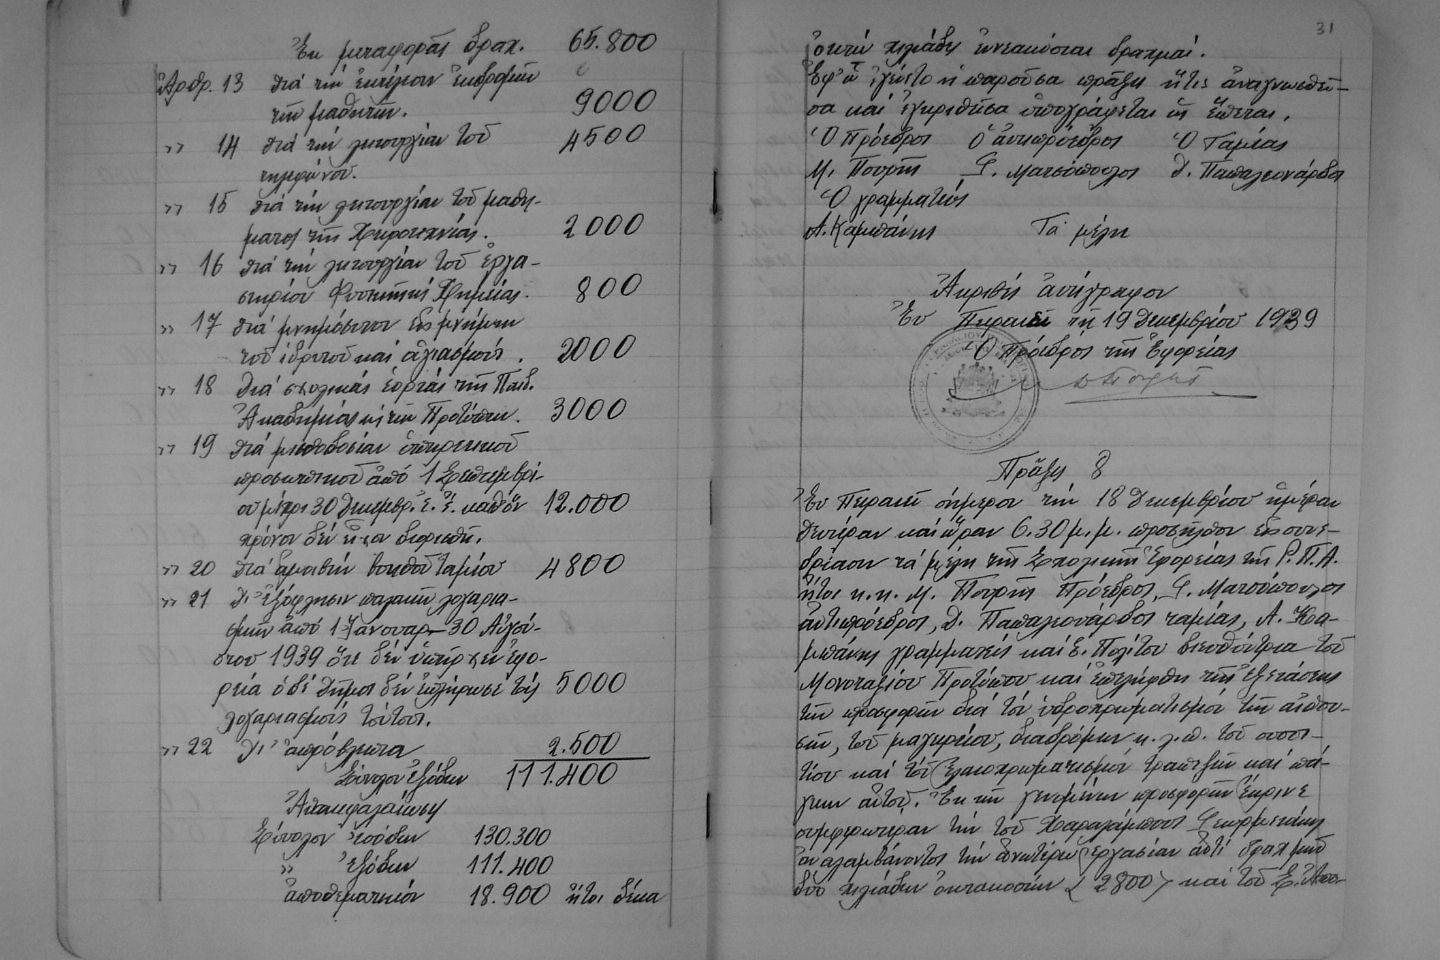 Ἐκ μεταφορᾶς δραχ. 65.800
Ἄρθρ. 13 διὰ τὴν ἐτησίαν ἐκδρομὴν
τῶν μαθητῶν. 9000
〃 14 διὰ τὴν λειτουργίαν τοῦ 4500
τηλεφώνου.
〃 15 διὰ τὴν λειτουργίαν τοῦ μαθή-
ματος τῆς Χειροτεχνίας. 2000
〃 16 διὰ τὴν λειτουργίαν τοῦ ἐργα-
στηρίου Φυσικῆς καὶ Χημείας. 800
〃 17 διὰ μνημόσυνον εἰς μνήμην
τοῦ ἱδρυτοῦ καὶ ἁγιασμούς. 2000
〃 18 διὰ σχολικὰς ἑορτὰς τῆς Παιδ.
Ἀκαδημίας καὶ τῶν Προτύπων. 3000
〃 19 διὰ μισθοδοσίαν ὑπηρετικοῦ
προσωπικοῦ ἀπὸ 1 Σεπτεμβρί-
ου μέχρι 30 Δεκεμβρ. ἐ. ἔ. καθ' ὃν 12.000
χρόνον δὲν εἶχον διορισθῆ.
〃 20 διὰ ἀμοιβὴν βοηθοῦ ταμίου 4800
〃 21 δι' ἐξόφλησιν παλαιῶν λογαρια-
σμῶν ἀπὸ 1 Ἰανουαρ – 30 Αὐγού-
στου 1939 ὅτε δὲν ὑπῆρχεν ἐφο-
ρεία ὁ δὲ δῆμος δὲν ἐπλήρωσε τοὺς 5000
λογαριασμοὺς τούτους.
〃 22 δι' ἀπρόβλεπτα 2.500
Σύνολον ἐξόδων 111.400
Ἀνακεφαλαίωσις
Σύνολον Ἐσόδων 130.300
〃 Ἐξόδων 111.400
ἀποθεματικόν 18.900 ἤτοι δέκα
31
ὀκτὼ χιλιάδες ἐννεακόσιαι δραχμαί.
Ἐφ' ᾧ ἐγένετο ἡ παροῦσα πρᾶξις ἥτις ἀναγνωσθεῖ-
σα καὶ ἐγκριθεῖσα ὑπογράφεται ὡς ἕπεται.
Ὁ Πρόεδρος Ὁ ἀντιπρόεδρος Ὁ Ταμίας
Μ. Πουρῆς Γ. Ματσόπουλος Δ. Παπαλεονάρδος
Ὁ γραμματεύς
Α. Καμπάνης Τὰ μέλη
Ἀκριβὲς ἀντίγραφον
Ἐν Πειραιεῖ τῇ 19 Δεκεμβρίου 1939
Ὁ Πρόεδρος τῆς Ἐφορείας
Πρᾶξις 8
Ἐν Πειραιεῖ σήμερον τὴν 18 Δεκεμβρίου ἡμέραν
Δευτέραν καὶ ὥραν 6.30 μ.μ. προσῆλθον εἰς συνε-
δρίασιν τὰ μέλη τῆς Σχολικῆς Ἐφορείας τῆς Ρ.Π.Α.
ἤτοι κ.κ. Μ. Πουρῆς Πρόεδρος, Γ. Ματσόπουλος
ἀντιπρόεδρος, Δ. Παπαλεονάρδος ταμίας, Α. Κα-
μπάνης γραμματεὺς καὶ Ε. Πολίτου διευθύντρια τοῦ
Μονοταξίου Προτύπου καὶ ἐπελήφθη τῆς ἐξετάσεως
τῶν προσφορῶν διὰ τὸν ὑδροχρωματισμὸν τῶν αἰθου-
σῶν, τοῦ μαγειρείου, διαδρόμων κ.λ.π. τοῦ συσσι-
τίου καὶ τὸν ἐλαιοχρωματισμὸν τραπεζῶν καὶ πά-
γκων αὐτοῦ. Ἐκ τῶν γενομένων προσφορῶν ἔκρινε
συμφερωτέραν τὴν τοῦ Χαραλάμπους
ἀναλαμβάνοντος τὴν ἀνωτέρω ἐργασίαν ἀντὶ δραχμῶν
δύο χιλιάδων ὀκτακοσίων (2800) καὶ τοῦ